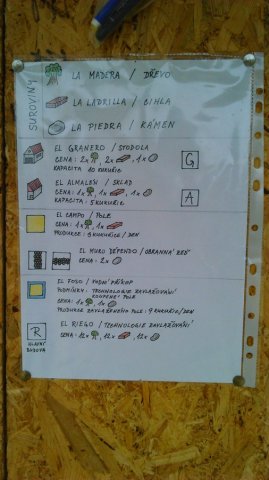 SUROVINY
LA MADERA / DŘEVO
LA LADRILLA / CIHLA
LA PIEDRA / KÁMEN
EL GRANERO / STODOLA
CENA: 2x , 2x , 1x
KAPACITA 10 KUKUŘIC
G
EL ALMALÉN / SKLAD
CENA: 1x , 1x , 1x
KAPACITA: 5 KUKUŘIC
A
EL CAMPO / POLE
CENA: 1x , 1x
PRODUKCE: KUKUŘICE / DEN
EL MURO DEFENDO / OBRANNÁ ZEĎ
CENA: 2x
EL FOSO / VODNÍ PŘÍKOP
PODMÍNKY: TECHNOLOGIE ZAVLAŽOVÁNÍ
KOUPENÉ POLE
CENA: 1x , 1x
PRODUKCE ZAVLAŽENÉHO POLE: 9 KUKUŘIC / DEN
R
HLAVNÍ
BUDOVA
EL RIEGO / TECHNOLOGIE ZAVLAŽOVÁNÍ
CENA: 12x , 12x , 12x